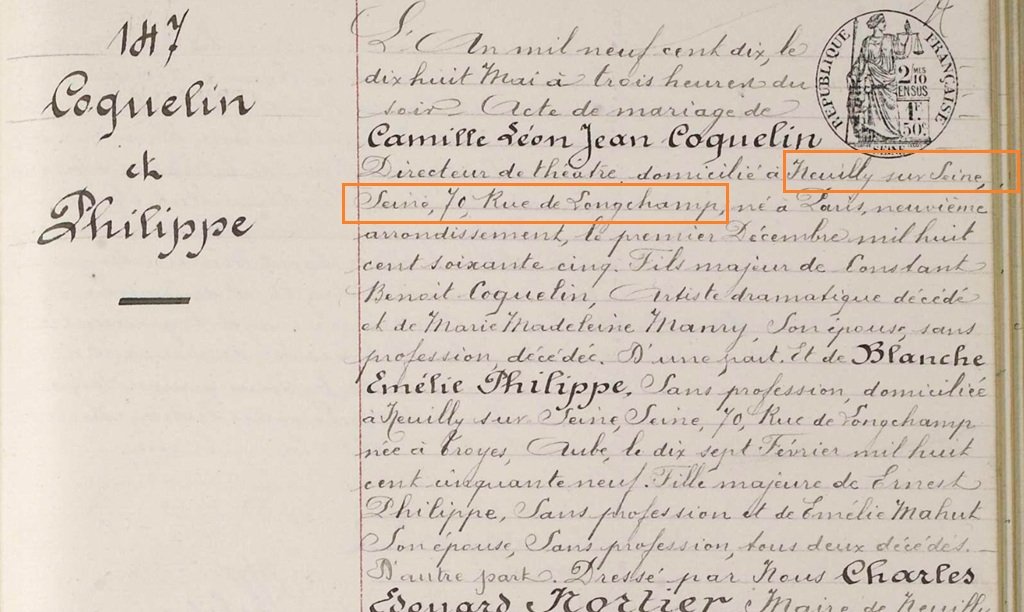 147
Coquelin
et
Philippe
L'An mil neuf cent dix, le
dix huit Mai à trois heures du
soir Acte de mariage de
Camille Léon Jean Coquelin
Directeur de théâtre, domicilié à Neuilly sur Seine,
Seine, 70, Rue de Longchamp, né à Paris, neuvième
arrondissement, le premier Décembre mil huit
cent soixante cinq. Fils majeur de Constant
Benoit Coquelin, Artiste dramatique décédé
et de Marie Madeleine Manry, Son épouse, sans
profession, décédée. D'une part. Et de Blanche
Emélie Philippe, Sans profession, domiciliée
à Neuilly sur Seine, Seine, 70, Rue de Longchamp
née à Troyes, Aube, le dix sept Février mil huit
cent cinquante neuf. Fille majeure de Ernest
Philippe, Sans profession et de Emélie Mahut
Son épouse, Sans profession, tous deux décédés.
D'autre part. Dressé par Nous Charles
Edouard Nortier Maire de Neuilly
RÉPUBLIQUE FRANÇAISE
2/10 MES
EN SUS
1F
50c
SEINE